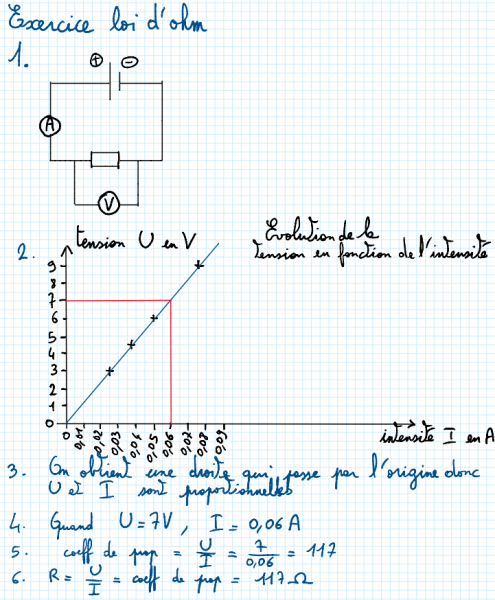 Exercice loi d'ohm
1.
⊕ ⊖
A
V
2. tension U en V
Evolution de la
tension en fonction de l'intensité
9
8
7
6
5
4
3
2
1
0
0 0,01 0,02 0,03 0,04 0,05 0,06 0,07 0,08 0,09
intensité I en A
3. On obtient une droite qui passe par l'origine donc
U et I sont proportionnelles
4. Quand U = 7V, I = 0,06 A
5. coeff de prop = U/I = 7/0,06 = 117
6. R = U/I = coeff de prop = 117 Ω